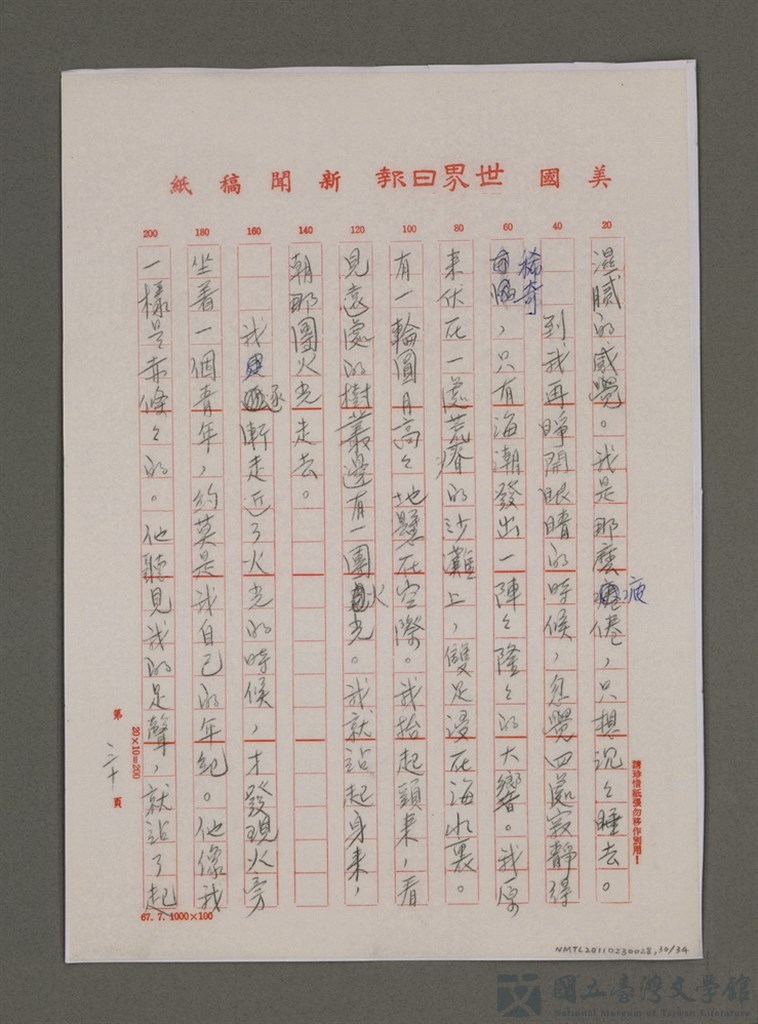 美國世界日報新聞稿紙
20
40
60
80
100
120
140
160
180
200
濕膩的感覺。我是那麼疲倦，只想沉々睡去。
到我再睜開眼睛的時候，忽覺四處寂靜得
稀奇，只有海潮發出一陣々隆々的大響。我原
來伏在一處荒瘠的沙灘上，雙足浸在海水裏。
有一輪圓月高々地懸在空際。我抬起頭來，看
見遠處的樹叢邊有一團火光。我就站起身來，
朝那團火光走去。
我逐漸走近了火光的時候，才發現火旁
坐着一個青年，約莫是我自己的年紀。他像我
一樣是赤條々的。他聽見我的足聲，就站了起
請珍惜紙張勿移作別用！
20×10=200
第三十頁
67. 7. 1000×100
NMTL20110230028,30/34
國立臺灣文學館
National Museum of Taiwan Literature